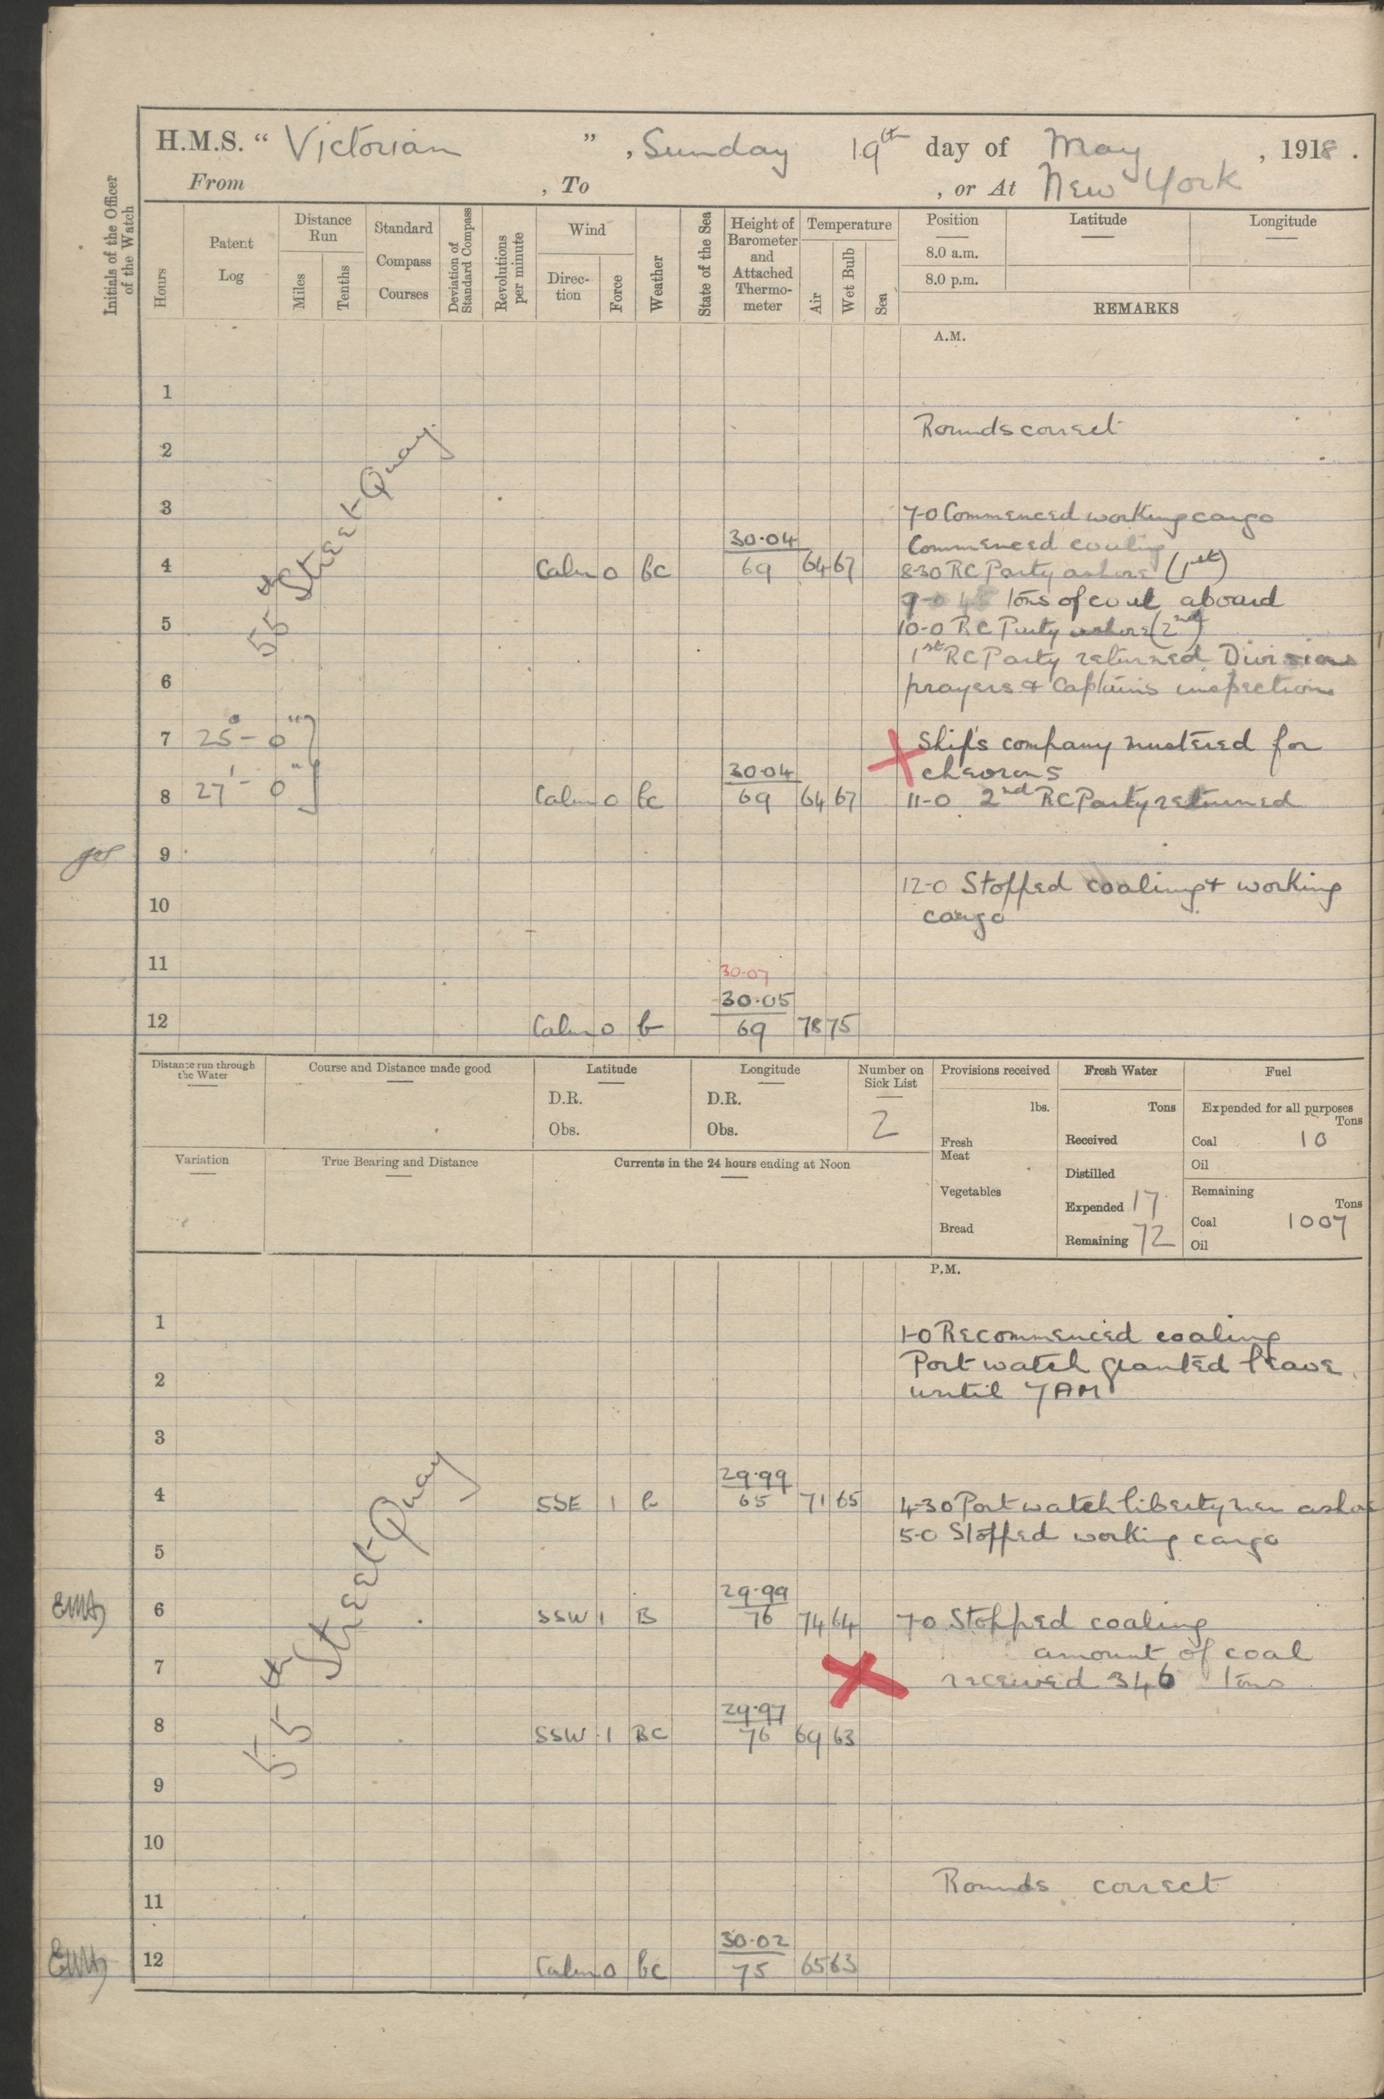 H.M.S. " Victorian " , Sunday 19th day of May , 1918 .
From , To , or At New York
Initials of the Officer of the Watch
Hours
Patent Log
Distance Run
Miles
Tenths
Standard Compass Courses
Deviation of Standard Compass
Revolutions per minute
Wind
Direc-tion
Force
Weather
State of the Sea
Height of Barometer and Attached Thermo-meter
Temperature
Air
Wet Bulb
Sea
Position Latitude Longitude
8.0 a.m.
8.0 p.m.
REMARKS
A.M.
55th Street Quay
1
Rounds correct
2
3 7-0 Commenced working cargo
30.04 Commenced coaling
4 Calm 0 bc 69 64 67 8-30 RC Party ashore (1st)
9-0 tons of coal aboard
5 10-0 RC Party ashore (2nd)
1st RC Party returned Divisions
6 prayers & Captains inspection
7 25' - 0" Ship's company mustered for
30.04 chevrons
8 27' - 0" Calm 0 bc 69 64 67 11-0 2nd RC Party returned
9
12-0 Stopped coaling & working
10 cargo
11 30.07
30.05
12 Calm 0 b 69 78 75
Distance run through the Water
Course and Distance made good
Latitude
D.R.
Obs.
Longitude
D.R.
Obs.
Number on Sick List
2
Provisions received
lbs.
Fresh Meat
Vegetables
Bread
Fresh Water
Tons
Received
Distilled
Expended 17
Remaining 72
Fuel
Expended for all purposes
Tons
Coal 10
Oil
Remaining
Tons
Coal 1007
Oil
Variation
True Bearing and Distance
Currents in the 24 hours ending at Noon
P.M.
55th Street Quay
1 1-0 Recommenced coaling
Port watch granted leave
2 until 7 AM
3
29.99
4 SSE 1 b 65 71 65 4-30 Port watch liberty men ashore
5 5-0 Stopped working cargo
29.99
6 SSW 1 B 76 74 64 7-0 Stopped coaling
amount of coal
7 received 346 tons
29.97
8 SSW 1 BC 76 69 63
9
10
Rounds correct
11
30.02
12 Calm 0 bc 75 65 63